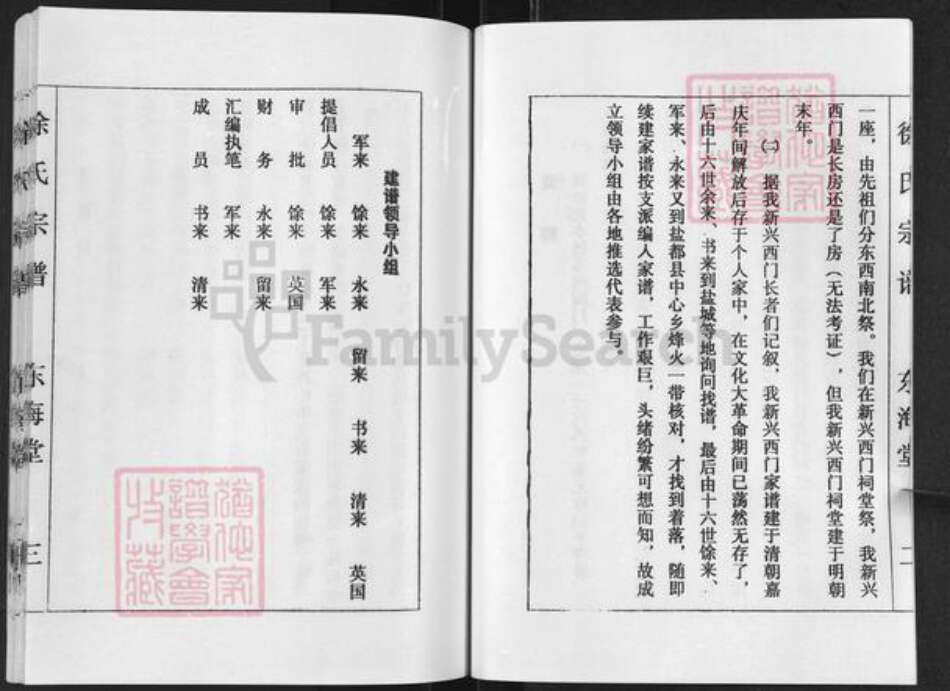 徐氏宗谱 东海堂 二
一座，由先祖们分东西南北祭。我们在新兴西门祠堂祭，我新兴
西门是长房还是了房（无法考证），但我新兴西门祠堂建于明朝
末年。
㈡ 据我新兴西门长者们记叙，我新兴西门家谱建于清朝嘉
庆年间解放后存于个人家中，在文化大革命期间已荡然无存了，
后由十六世余来、书来到盐城等地询问找谱，最后由十六世馀来、
军来、永来又到盐都县中心乡烽火一带核对，才找到着落，随即
续建家谱按支派编人家谱，工作艰巨，头绪纷繁可想而知，故成
立领导小组由各地推选代表参与。
建谱领导小组
军来 馀来 永来 留来 书来 清来 英国
提倡人员 馀来 军来
审批 馀来 英国
财务 永来 留来
汇编执笔 军来
成员 书来 清来
徐氏宗谱 东海堂 三
FamilySearch